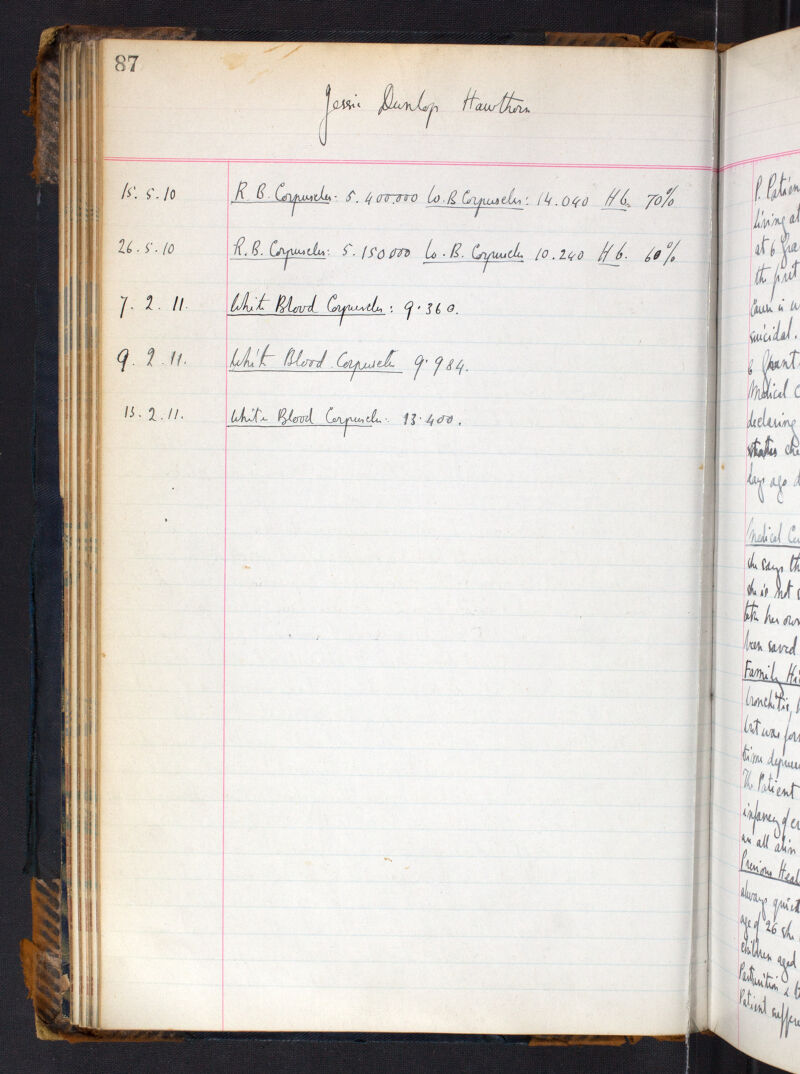 87
Jessie Dunlop Hawthorn
15.5.10 R.B. Corpuscles: 5.400.000 W.B Corpuscles: 14.040 Hb. 70%
26.5.10 R.B. Corpuscles: 5.150000 W.B. Corpuscles 10.240 Hb. 60%
7.2.11. White Blood Corpuscles: 9.360.
9.2.11. White Blood Corpuscles 9.984.
13.2.11. White Blood Corpuscles: 13.400.
living at
at 6
the
suicidal.
6
Medical C
declaring
states she
days ago d
Medical Ce
she says th
she is not s
been saved
Family Hi
bronchitis,
The Patient
Previous Heal
always quiet
age of 26 she
children aged
Parturition &
Patient suffere